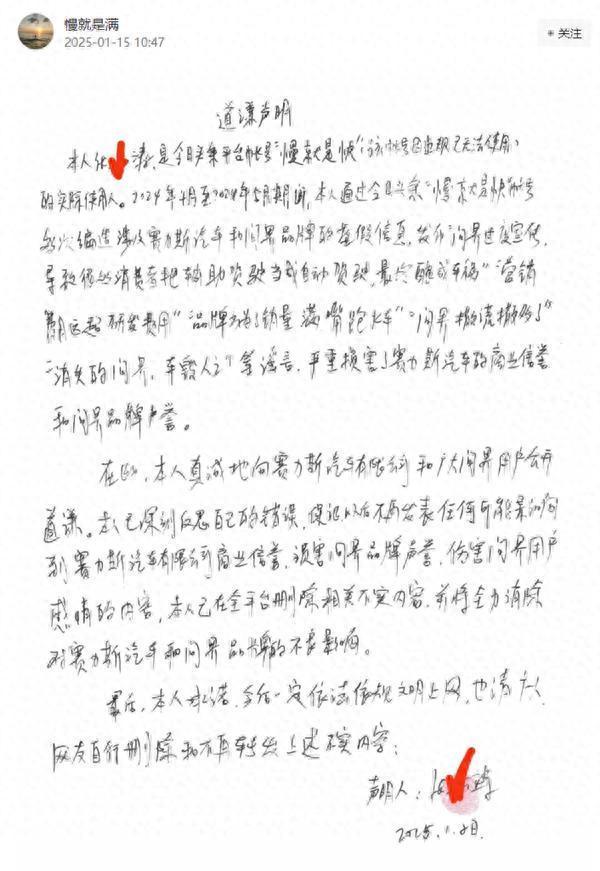 慢就是满
2025-01-15 10:47
关注
道谦声明
本人 涛,是今日头条平台帐号“慢就是快”(该帐号因违规已无法使用)
的实际使用人。2024年4月至2024年5月期间,本人通过今日头条“慢就是快”帐号
多次编造涉及赛力斯汽车和问界品牌的虚假信息,发布“问界过度宣传,
导致很多消费者把辅助驾驶当成自动驾驶,最终酿成车祸”“营销
费用远超研发费用”“品牌方为了销量满嘴跑火车”“问界撒谎撒多了”
“消失的问界,车毁人亡”等谣言,严重损害了赛力斯汽车的商业信誉
和问界品牌声誉。
在此,本人真诚地向赛力斯汽车有限公司和广大问界用户公开
道谦。本人已深刻反思自己的错误,保证以后不再发表任何可能影响
到赛力斯汽车有限公司商业信誉,损害问界品牌声誉,伤害问界用户
感情的内容,本人已在全平台删除相关不实内容,并将全力消除
对赛力斯汽车和问界品牌的不良影响。
最后,本人承诺,今后一定依法依规文明上网,也请广大
网友自行删除和不再转发上述不实内容;
声明人:
2025.1.